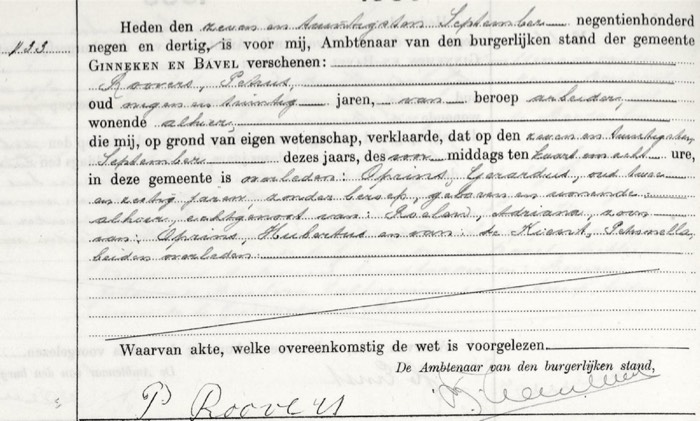 Heden den zeven en twintigsten September negentienhonderd
negen en dertig, is voor mij, Ambtenaar van den burgerlijken stand der gemeente
GINNEKEN EN BAVEL verschenen:
Roovers, Petrus,
oud negen en twintig jaren, van beroep arbeider,
wonende alhier,
die mij, op grond van eigen wetenschap, verklaarde, dat op den zeven en twintigsten
September dezes jaars, des voor middags ten kwart over acht ure,
in deze gemeente is overleden: Oprins, Gerardus, oud twee
en zestig jaren, zonder beroep, geboren en wonende
alhier, echtgenoot van: Roelen, Adriana, zoon
van: Oprins, Hubertus en van: de Kicent, Petronella,
beiden overleden.
Waarvan akte, welke overeenkomstig de wet is voorgelezen.
De Ambtenaar van den burgerlijken stand,
P Roovers